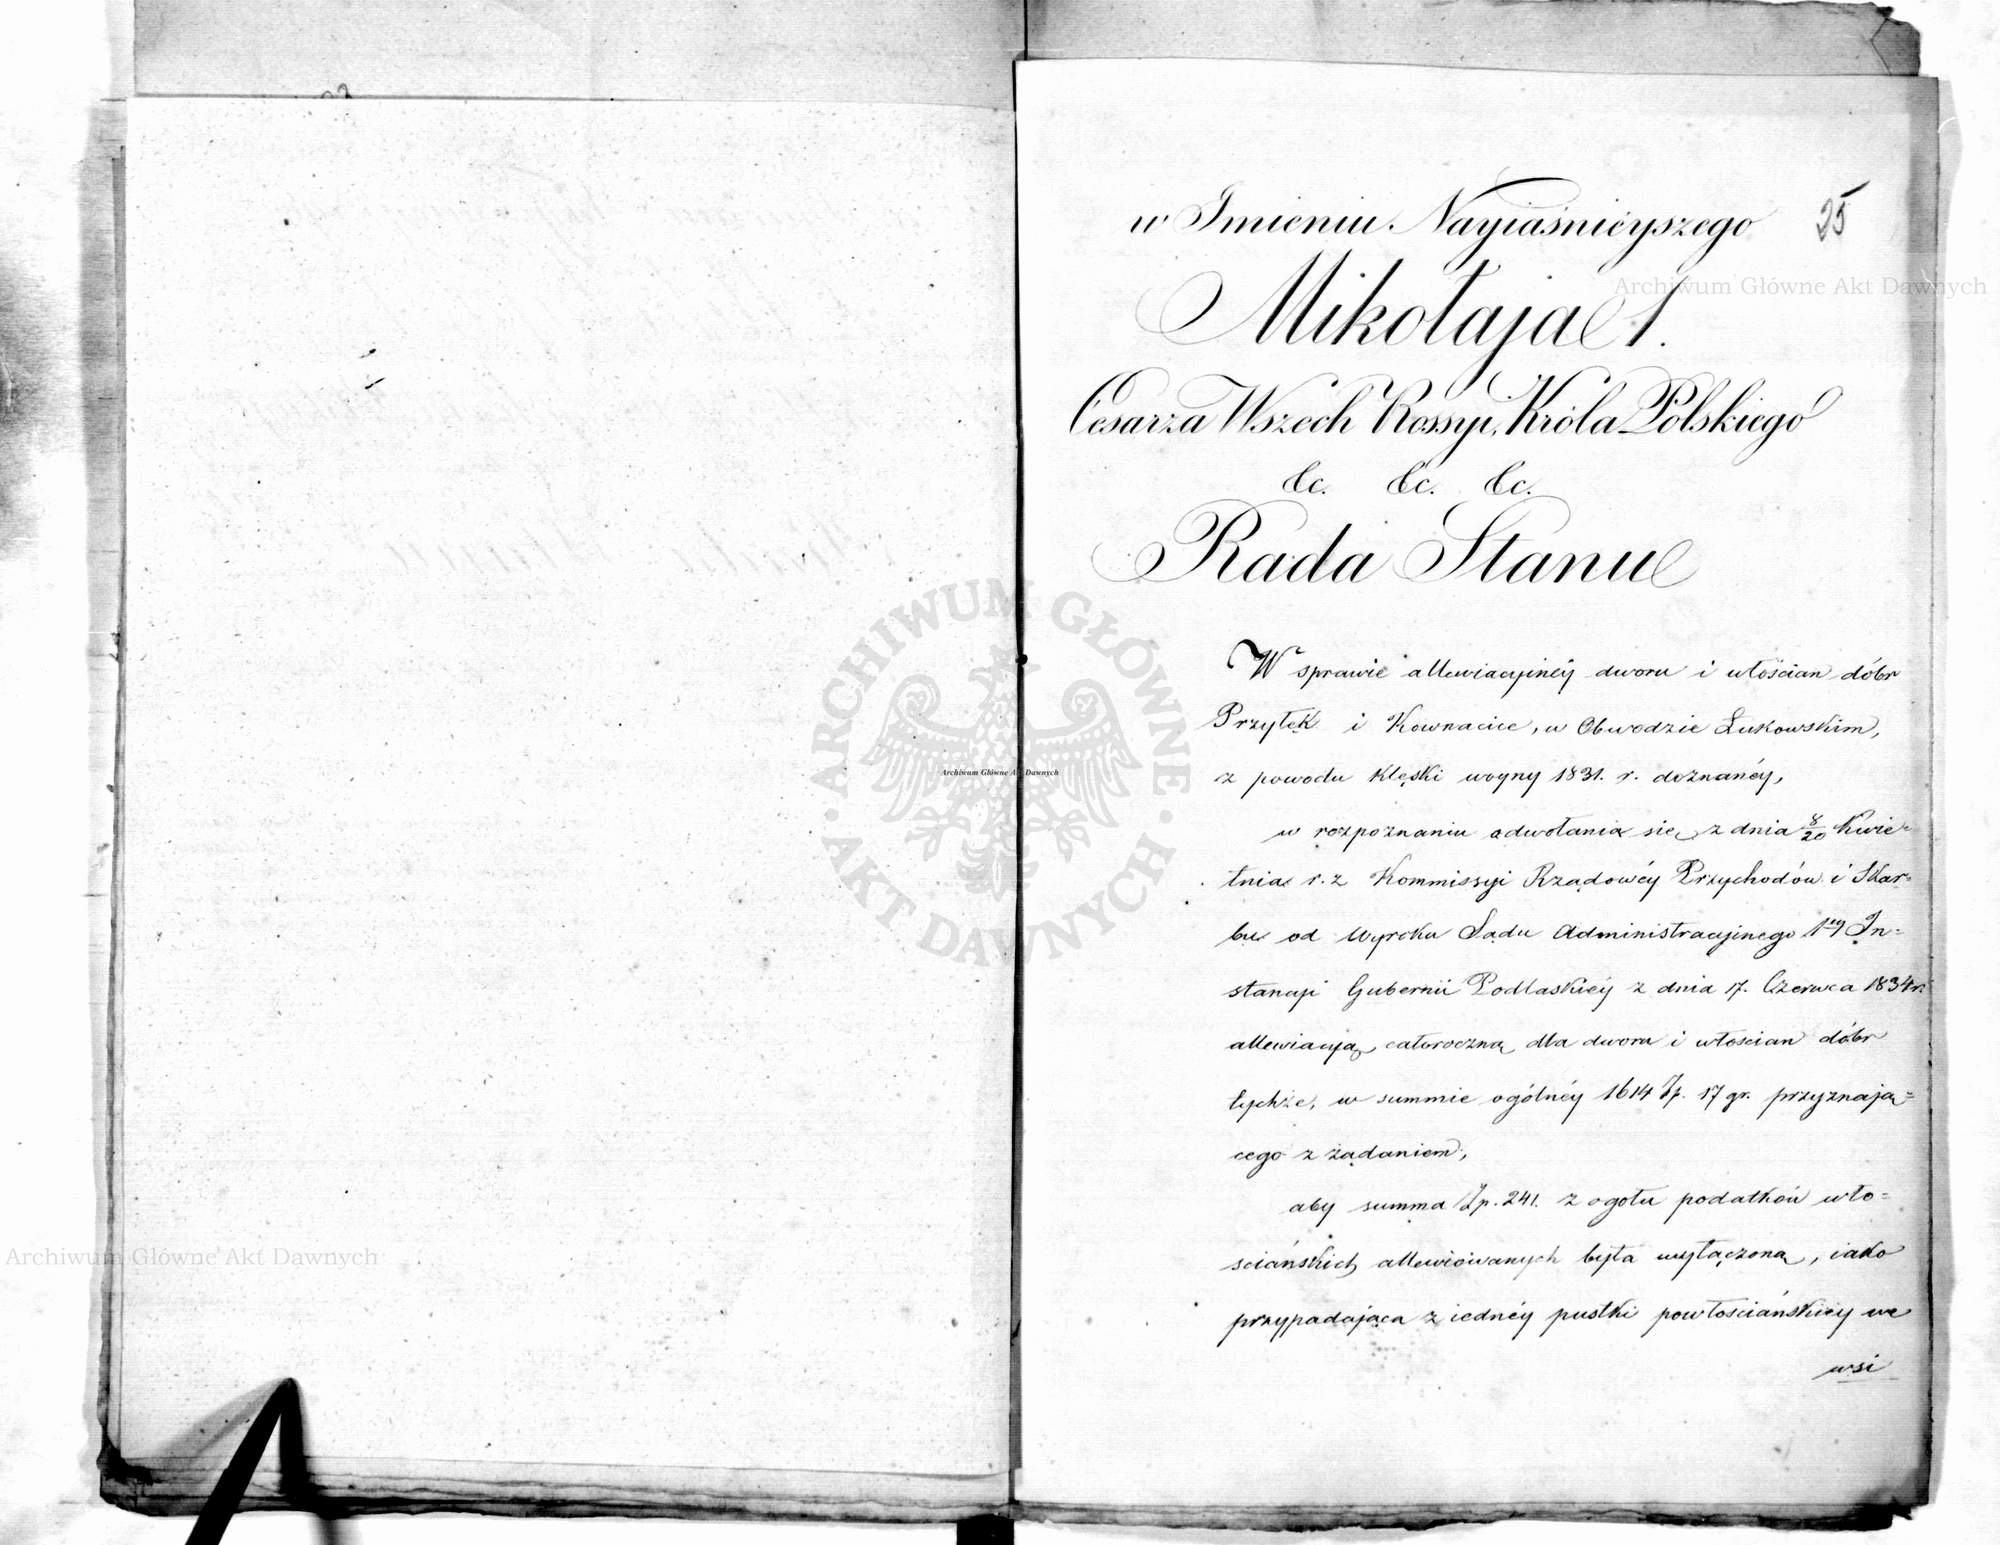 w Imieniu Nayiaśnieyszego
25
Mikołaja 1.
Cesarza Wszech Rossyi, Króla Polskiego
&c. &c. &c.
Rada Stanu
W sprawie allewiacyjnéy dworu i włościan dóbr
Przyłęk i Kownacice, w Obwodzie Łukowskim,
z powodu klęski woyny 1831. r. doznanéy,
w rozpoznaniu odwołania się z dnia 8/20 Kwie-
tnia r. z Kommissyi Rządowéy Przychodów i Skar-
bu od Wyroku Sądu Administracyjnego 1éy In=
stancyi Gubernii Podlaskiéy z dnia 17. Czerwca 1834 r.
allewiacyją całoroczną dla dworu i włościan dóbr
tychże, w summie ogólnéy 1614 Zp. 17 gr. przyznają=
cego z żądaniem,
aby summa Zp. 241. z ogołu podatków wło=
sciańskich allewiowanych była wyłączoną, iako
przypadająca z iednéy pustki powłościańskiéy we
wsi
Archiwum Główne Akt Dawnych
Archiwum Główne Akt Dawnych
Archiwum Główne Akt Dawnych
· ARCHIWUM GŁÓWNE · AKT DAWNYCH